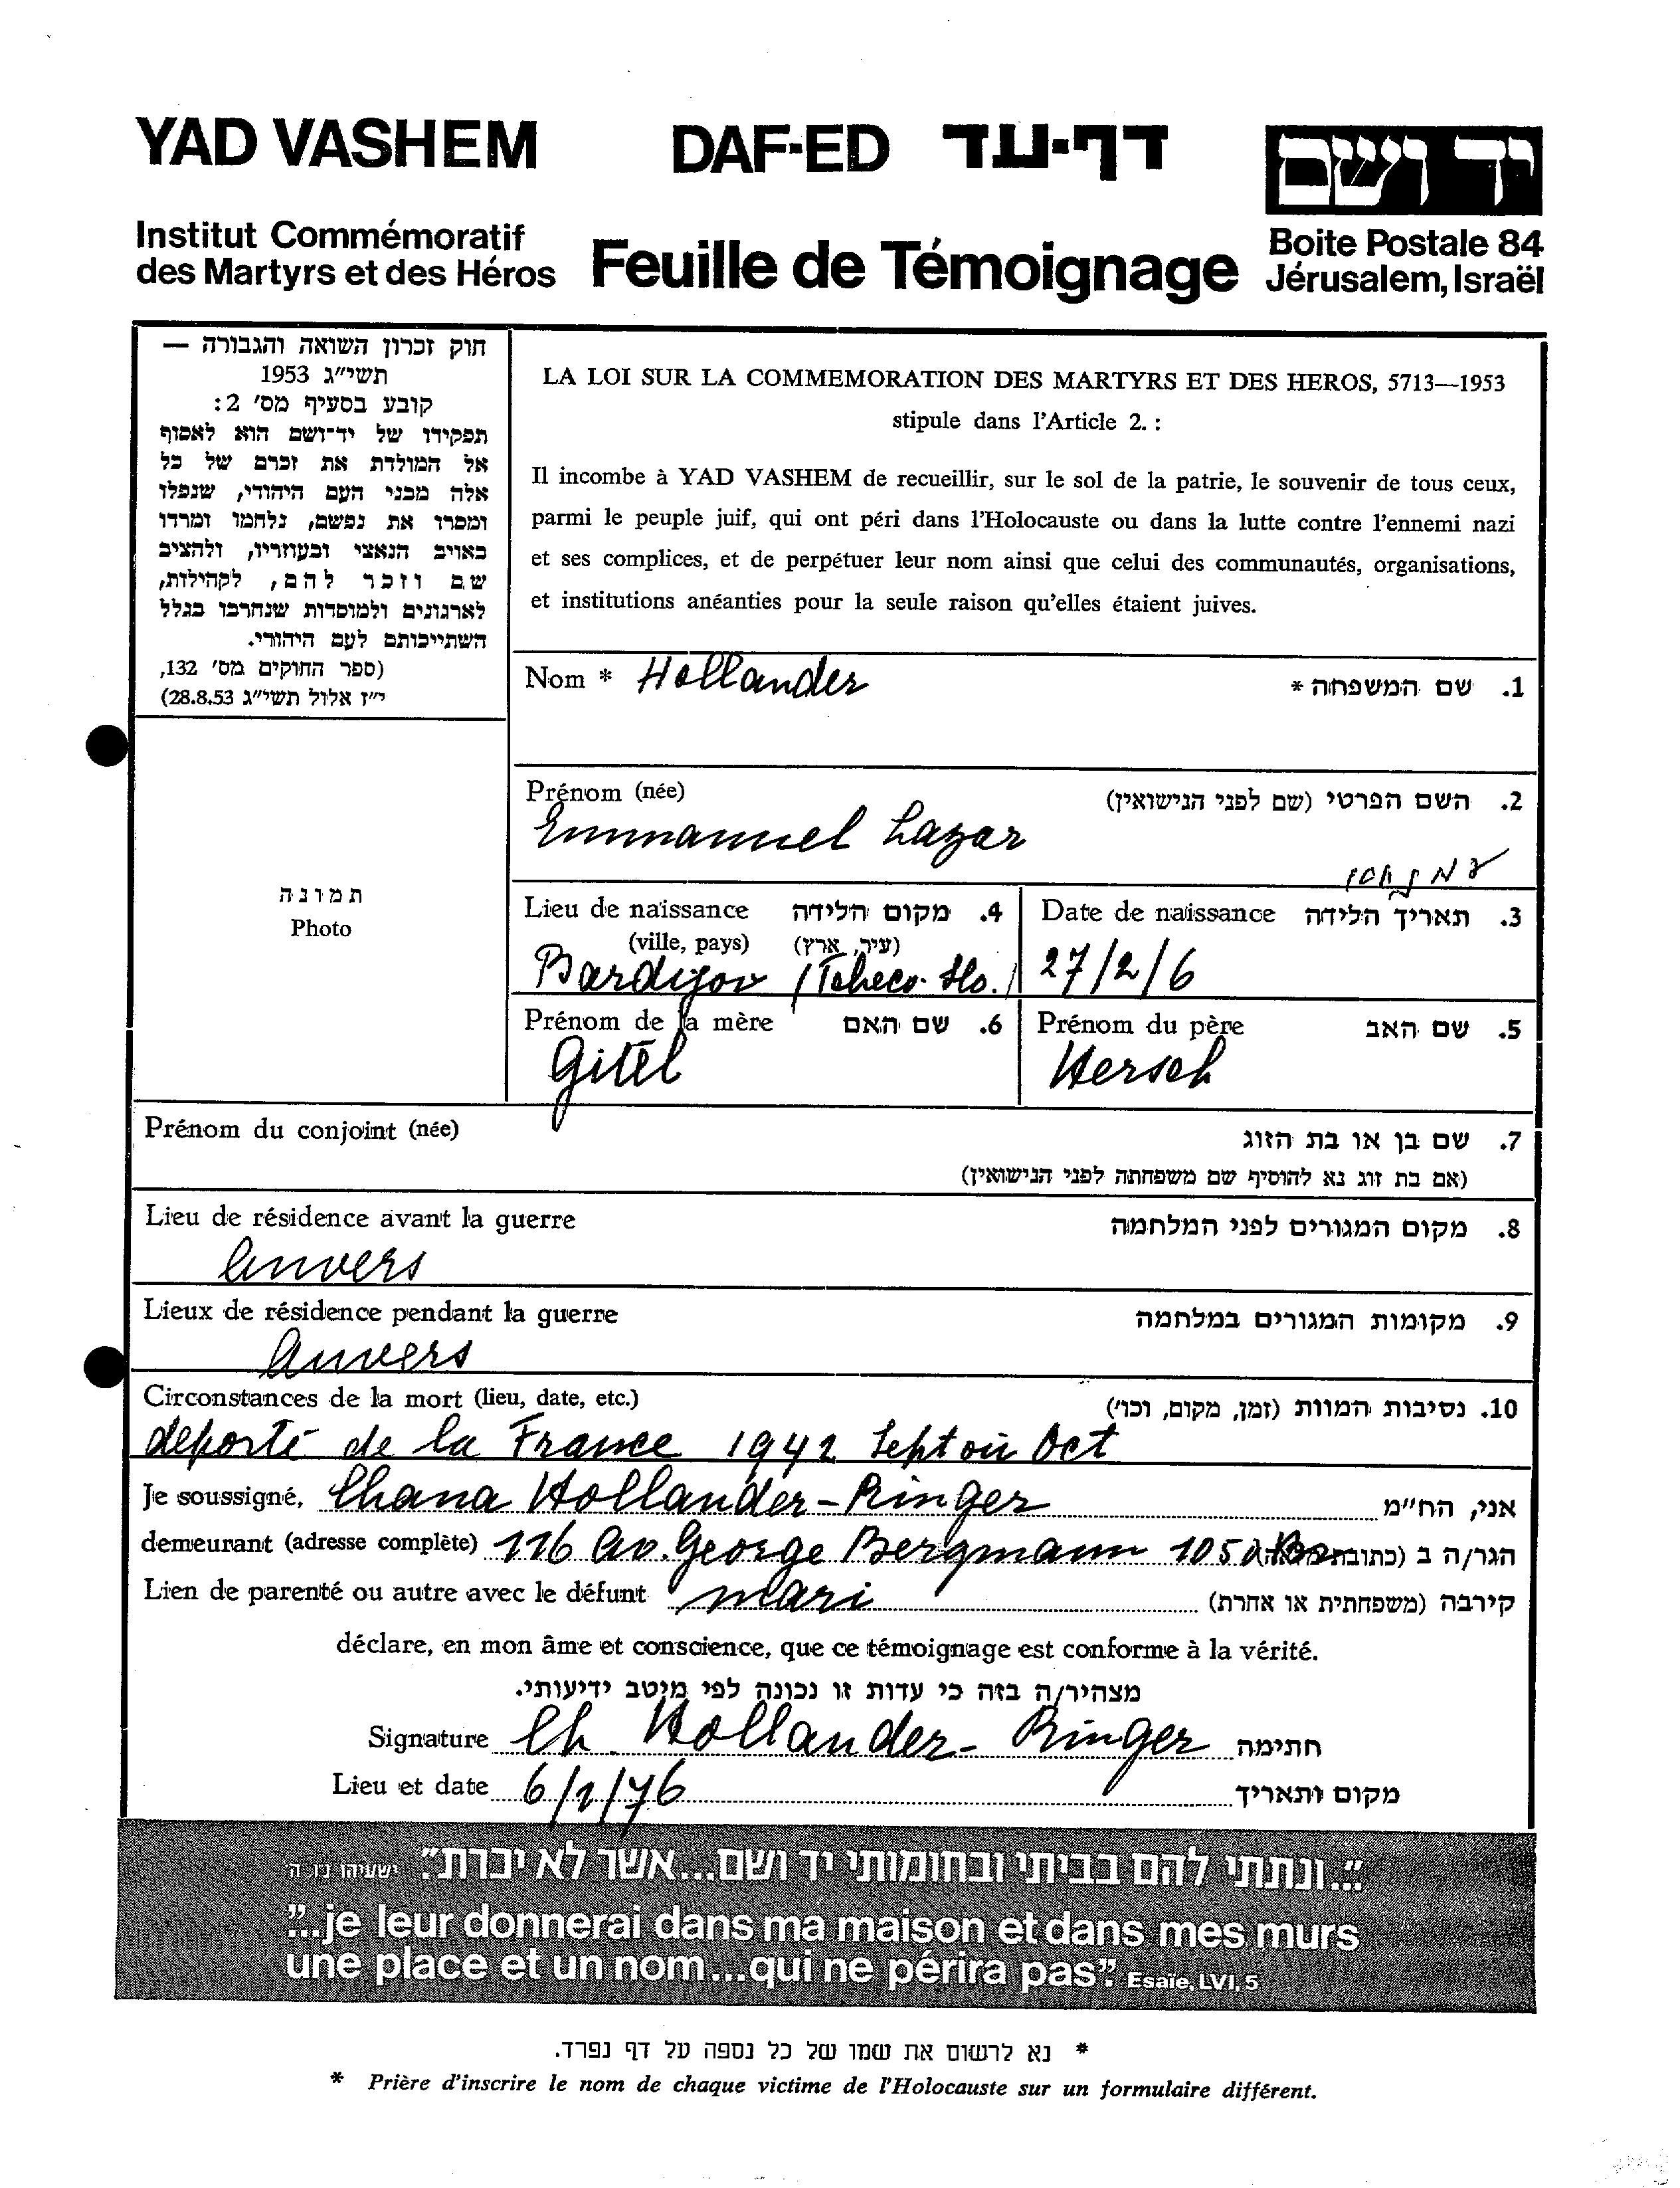 YAD VASHEM DAF-ED דף-עד יד ושם
Institut Commémoratif
des Martyrs et des Héros
Feuille de Témoignage
Boite Postale 84
Jérusalem, Israël
חוק זכרון השואה והגבורה —
תשי"ג 1953
קובע בסעיף מס' 2:
תפקידו של יד־ושם הוא לאסוף
אל המולדת את זכרם של כל
אלה מבני העם היהודי, שנפלו
ומסרו את נפשם, נלחמו ומרדו
באויב הנאצי ובעוזריו, ולהציב
שם וזכר להם, לקהילות,
לארגונים ולמוסדות שנחרבו בגלל
השתייכותם לעם היהודי.
(ספר החוקים מס' 132,
י"ז אלול תשי"ג 28.8.53)
LA LOI SUR LA COMMEMORATION DES MARTYRS ET DES HEROS, 5713—1953
stipule dans l'Article 2. :
Il incombe à YAD VASHEM de recueillir, sur le sol de la patrie, le souvenir de tous ceux,
parmi le peuple juif, qui ont péri dans l'Holocauste ou dans la lutte contre l'ennemi nazi
et ses complices, et de perpétuer leur nom ainsi que celui des communautés, organisations,
et institutions anéanties pour la seule raison qu'elles étaient juives.
Nom * Hollander 1. שם המשפחה *
Prénom (née) 2. השם הפרטי (שם לפני הנישואין)
Emmanuel Lazar
תמונה
Photo
Lieu de naissance 4. מקום הלידה
(ville, pays) (עיר, ארץ)
Bardijov (Tcheco-Slo.)
Date de naissance 3. תאריך הלידה
27/2/6
Prénom de la mère 6. שם האם
Gitel
Prénom du père 5. שם האב
Hersch
Prénom du conjoint (née) 7. שם בן או בת הזוג
(אם בת זוג נא להוסיף שם משפחתה לפני הנישואין)
Lieu de résidence avant la guerre 8. מקום המגורים לפני המלחמה
Anvers
Lieux de résidence pendant la guerre 9. מקומות המגורים במלחמה
Anvers
Circonstances de la mort (lieu, date, etc.) 10. נסיבות המוות (זמן, מקום, וכו')
deporté de la France 1942 Sept ou Oct
Je soussigné, Chana Hollander-Ringer אני, הח"מ
demeurant (adresse complète) 116 Av. George Bergmann 1050 הגר/ה ב (כתובת
Lien de parenté ou autre avec le défunt mari קירבה (משפחתית או אחרת)
déclare, en mon âme et conscience, que ce témoignage est conforme à la vérité.
מצהיר/ה בזה כי עדות זו נכונה לפי מיטב ידיעותי.
Signature Ch. Hollander-Ringer חתימה
Lieu et date 6/1/76 מקום ותאריך
"...ונתתי להם בביתי ובחומותי יד ושם...אשר לא יכרת" ישעיהו נו ה
"..je leur donnerai dans ma maison et dans mes murs
une place et un nom...qui ne périra pas". Esaïe, LVI, 5
* נא לרשום את שמו של כל נספה על דף נפרד.
* Prière d'inscrire le nom de chaque victime de l'Holocauste sur un formulaire différent.